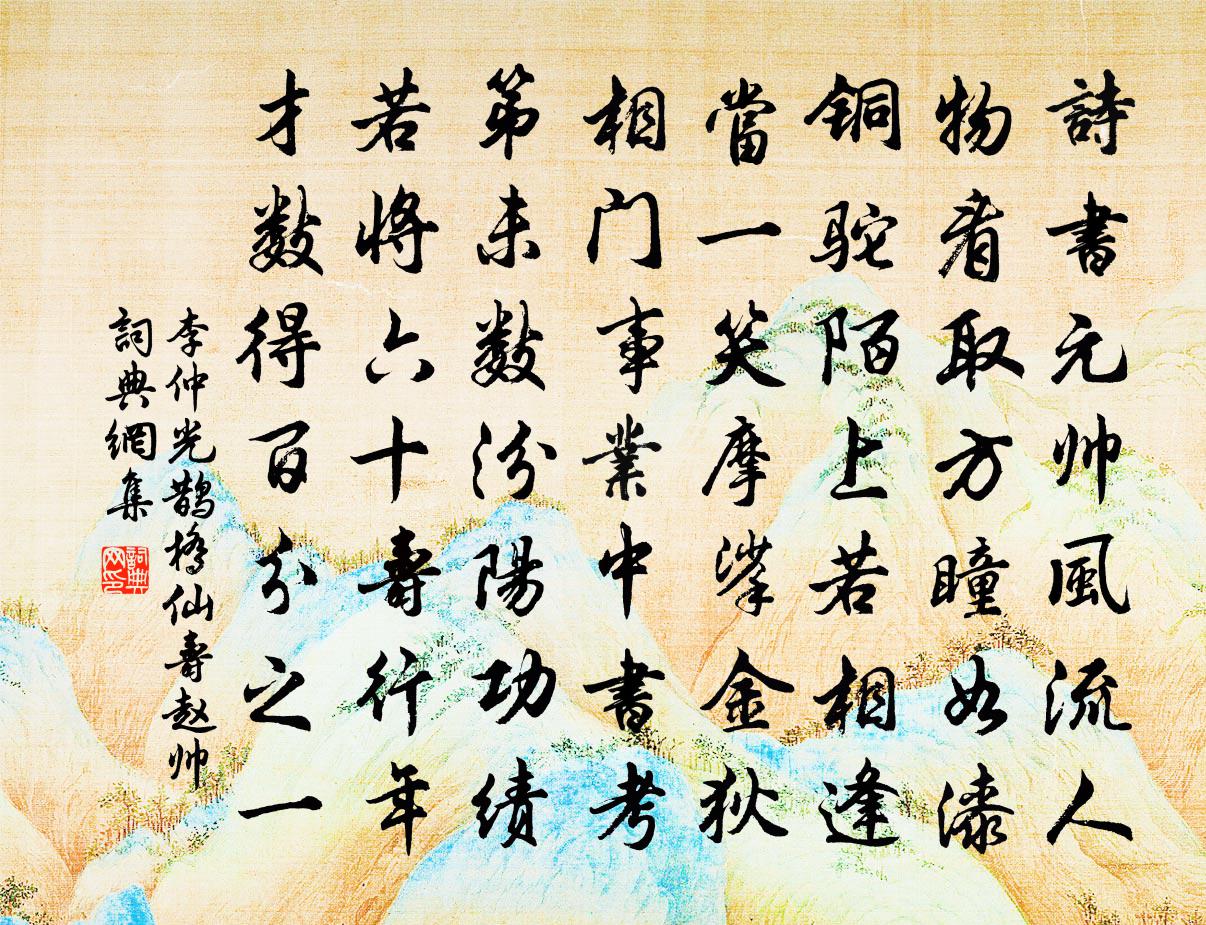 詩書元帅風流人
物看取方瞳如漆
铜驼陌上若相逢
當一笑摩挲金狄
相门事業中書考
第未数汾陽功绩
若将六十壽行年
才数得百分之一
李仲光鹊橋仙壽赵帅
詞典網集
詞典网印